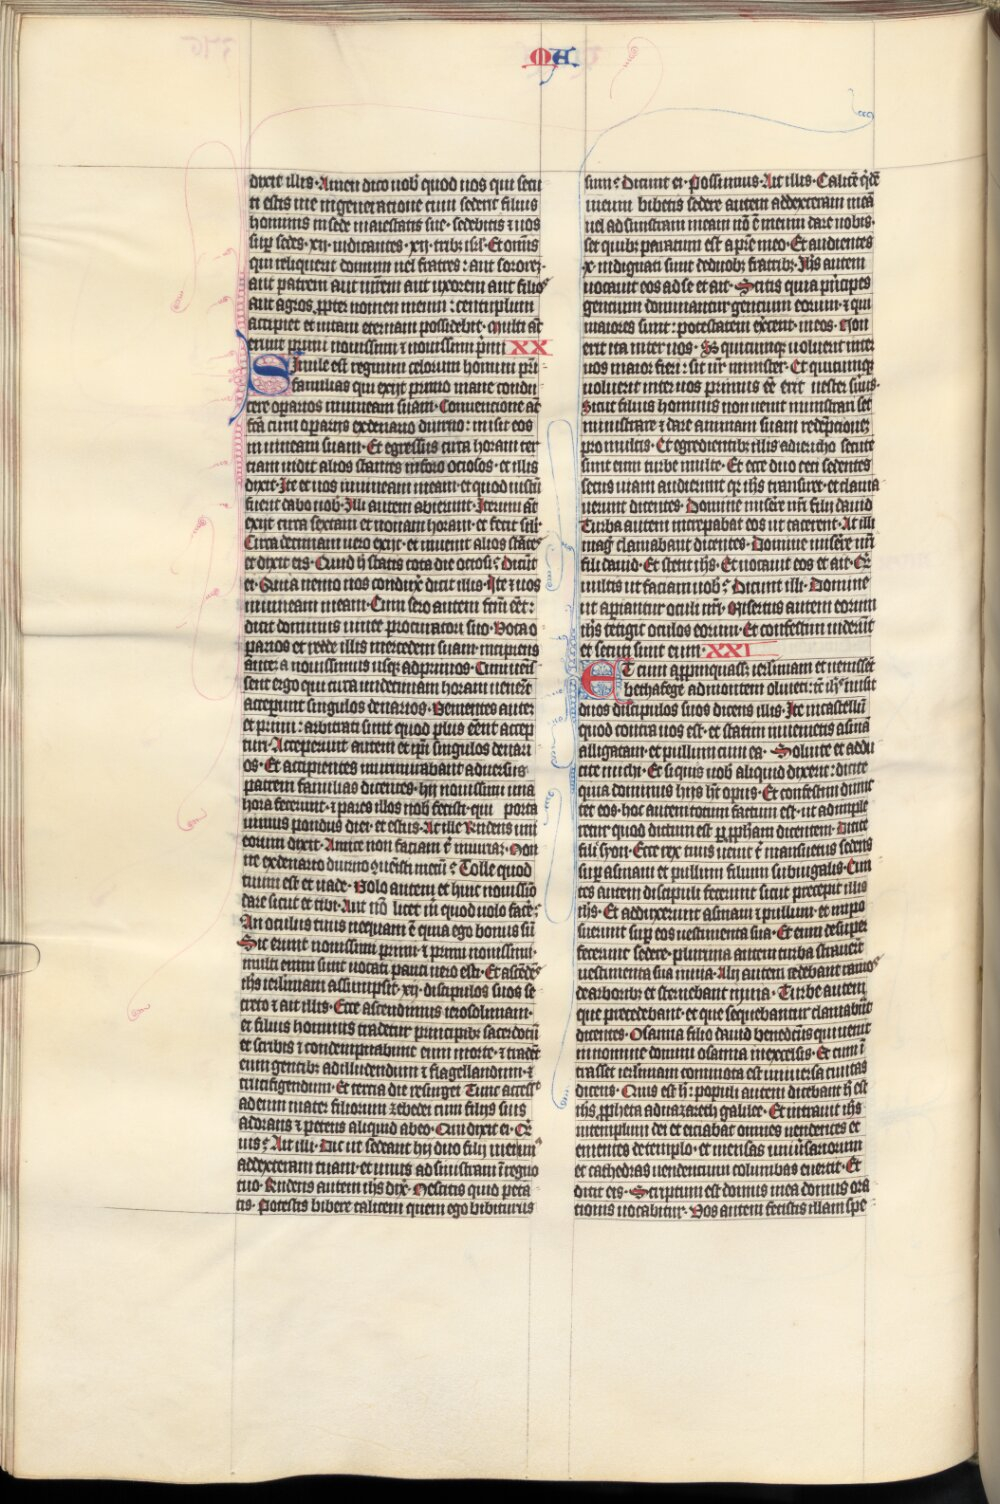 MA
dixit illis. Amen dico vob quod vos qui secu
ti estis me in generatione cum sederit filius
hominis in sede maiestatis sue. sedebitis et vos
sup sedes. xii. iudicantes. xii. trib isrl. Et omnis
qui reliquerit domum vel fratres: aut sorores.
aut patrem aut matrem aut uxorem aut filios
aut agros ppter nomen meum: centuplum
accipiet et vitam eternam possidebit. Multi at
erunt primi novissimi et novissimi pmi XX
Simile est regnum celorum homini pri
familias qui exijt primo mane condu
cere operarios in vineam suam. Conventione at
fca cum operarijs ex denario diurno: misit eos
in vineam suam. Et egressus circa horam ter
ciam vidit alios stantes in foro ociosos. et illis
dixit. Ite et vos in vineam meam. et quod iustu
fuerit dabo vob. Illi autem abierunt. Iterum at
exijt circa sextam et nonam horam. et fecit silr.
Circa decimam vero exijt. et invenit alios stätes
et dixit eis. Quid h statis tota die ociosi? Dicut
ei. Quia nemo nos conduxit. dicit illis. Ite et vos
in vineam meam. Cum sero autem fcm eet:
dicit dominus vinee procuratori suo. Voca o
perarios et redde illis mercedem suam incipiens
autem a novissimis usque ad primos. Cum veis
sent ergo qui circa undecimam horam venerat
acceperunt singulos denarios. Venientes autez
et primi: arbitrati sunt quod plus eent accep
turi. Acceperunt autem et ipi singulos denari
os. Et accipientes murmurabant adversus
patrem familias dicentes. hij novissimi una
hora fecerunt. et pares illos nob fecisti. qui porta
vimus pondus diei. et estus. At ille Rndens uni
eorum dixit. Amice non faciam t iniuriam. Non
ne ex denario diurno convenisti mecu? Tolle quod
tuum est et vade. Volo autem et huic novissimo
dare sicut et tibi. Aut no licet m quod volo facere?
An oculus tuus nequam e quia ego bonus su
Sic erunt novissimi primi. et primi novissimi.
multi enim sunt vocati pauci vero elcti. Et ascedes
ihs ierlimam assumpsit. xii. discipulos suos se
creto et ait illis. Ecce ascendimus ierosolimam.
et filius hominis tradetur principib sacerdotu
et scribis et condempnabunt eum morte. et tradet
eum gentib ad illudendum et flagellandum. et
crucifigendum. Et tercia die resurget Tunc accessit
ad eum mater filiorum zebedei cum filijs suis
adorans et petens aliquid ab eo. Cui dixit ei. Qd
vis? Ait illi. Dic ut sedeant hij duo filij mei unus
ad dexteram tuam. et unus ad sinistram i regno
tuo. Rndens autem ihs dix. Nescitis quid peta
tis. Potestis bibere calicem quem ego bibiturus
sum? Dicunt ei. Possumus. Ait illis. Calice qde
meum bibetis sedere autem ad dexteram mea
vel ad sinistram meam no e meum dare vobis.
set quib paratum est a pre meo. Et audientes
x. indignati sunt de duob fratrib. Ihs autem
vocavit eos ad se et ait. Scitis quia principes
gentium dominantur gentium eorum: et qui
maiores sunt: potestatem excent. in eos. Non
erit ita inter vos. Ss quicumque voluerit inter
vos maior fieri: sit vr minister. Et quicumque
voluerit inter vos primus ee erit vester suus.
Sicut filius hominis non venit ministrari set
ministrare et dare animam suam redeptionez
pro multis. Et egredientib illis a iericho secute
sunt eum turbe multe. Et ecce duo ceci sedentes
secus viam audierunt qr ihs transiret. et clama
verunt dicentes. Domine misere nri fili david
Turba autem increpabat eos ut tacerent. At illi
mag clamabant dicentes. Domine misere nri
fili david. Et stetit ihs. Et vocavit eos et ait. Qd
vultis ut faciam vob? Dicunt illi. Domine
ut apriantur oculi nri. Misertus autem eorum
ihs tetigit oculos eorum. Et confestim viderut
et secuti sunt eum. XXI
ET cum appinquass ierlimam et veniss&
bethafege ad montem oliveti: tc ihs misit
duos discipulos suos dicens illis. Ite in castellu
quod contra vos est. et statim invenietis asina
alligatam. et pullum cum ea. Solvite et addu
cite michi. Et si quis vob aliquid dixerit: dicite
quia dominus hijs ht opus. Et confestim dimit
tet eos. hoc autem totum factum est. ut adimple
retur quod dictum est p pphtam dicentem. Dicite
filie syon. Ecce rex tuus venit t mansuetus sedens
sup asinam et pullum filium subiugalis. Eun
tes autem discipuli fecerunt sicut precepit illis
ihs. Et adduxerunt asinam et pullum. et inpo
suerunt sup eos vestimenta sua. Et eum desuper
fecerunt sedere. plurima autem turba straverut
vestimenta sua in via. Alij autem cedebant ramos
de arborib. et sternebant in via. Turbe autem
que precedebant. et que sequebantur clamabant
dicentes. Osanna filio david benedictus qui venit
in nomine domini osanna in excelsis. Et cum i
trasset ierlimam commota est universa civitas
dicens. Quis est h: populi autem dicebant h est
ihs ppheta a nazareth galilee. Et intravit ihs
in templum dei et eiciebat omnes vendentes et
ementes de templo. et mensas numulariorum
et cathedras vendencium columbas evertit. Et
dicit eis. Scriptum est domus mea domus ora
tionis vocabitur. Vos autem fecistis illam spe